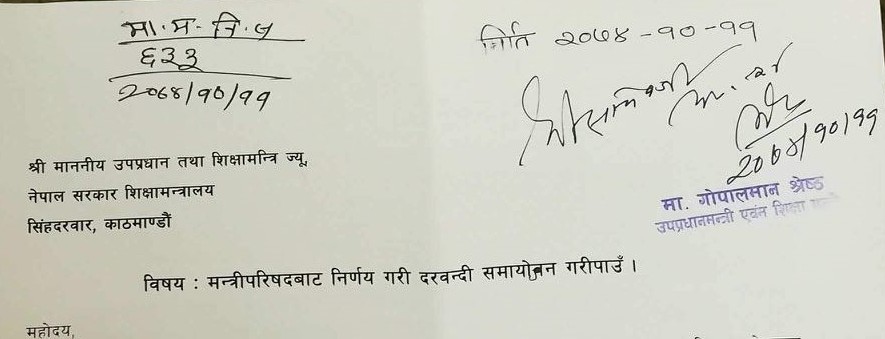 मा.म.नि.ज
६३३
२०७४/१०/११
मिति २०७४-१०-११
२०७४/१०/११
मा. गोपालमान श्रेष्ठ
उपप्रधानमन्त्री एवंम शिक्षा
श्री माननीय उपप्रधान तथा शिक्षामन्त्रि ज्यू,
नेपाल सरकार शिक्षामन्त्रालय
सिंहदरवार, काठमाण्डौं
विषय : मन्त्रीपरिषदबाट निर्णय गरी दरवन्दी समायोजन गरीपाउँ ।
महोदय,